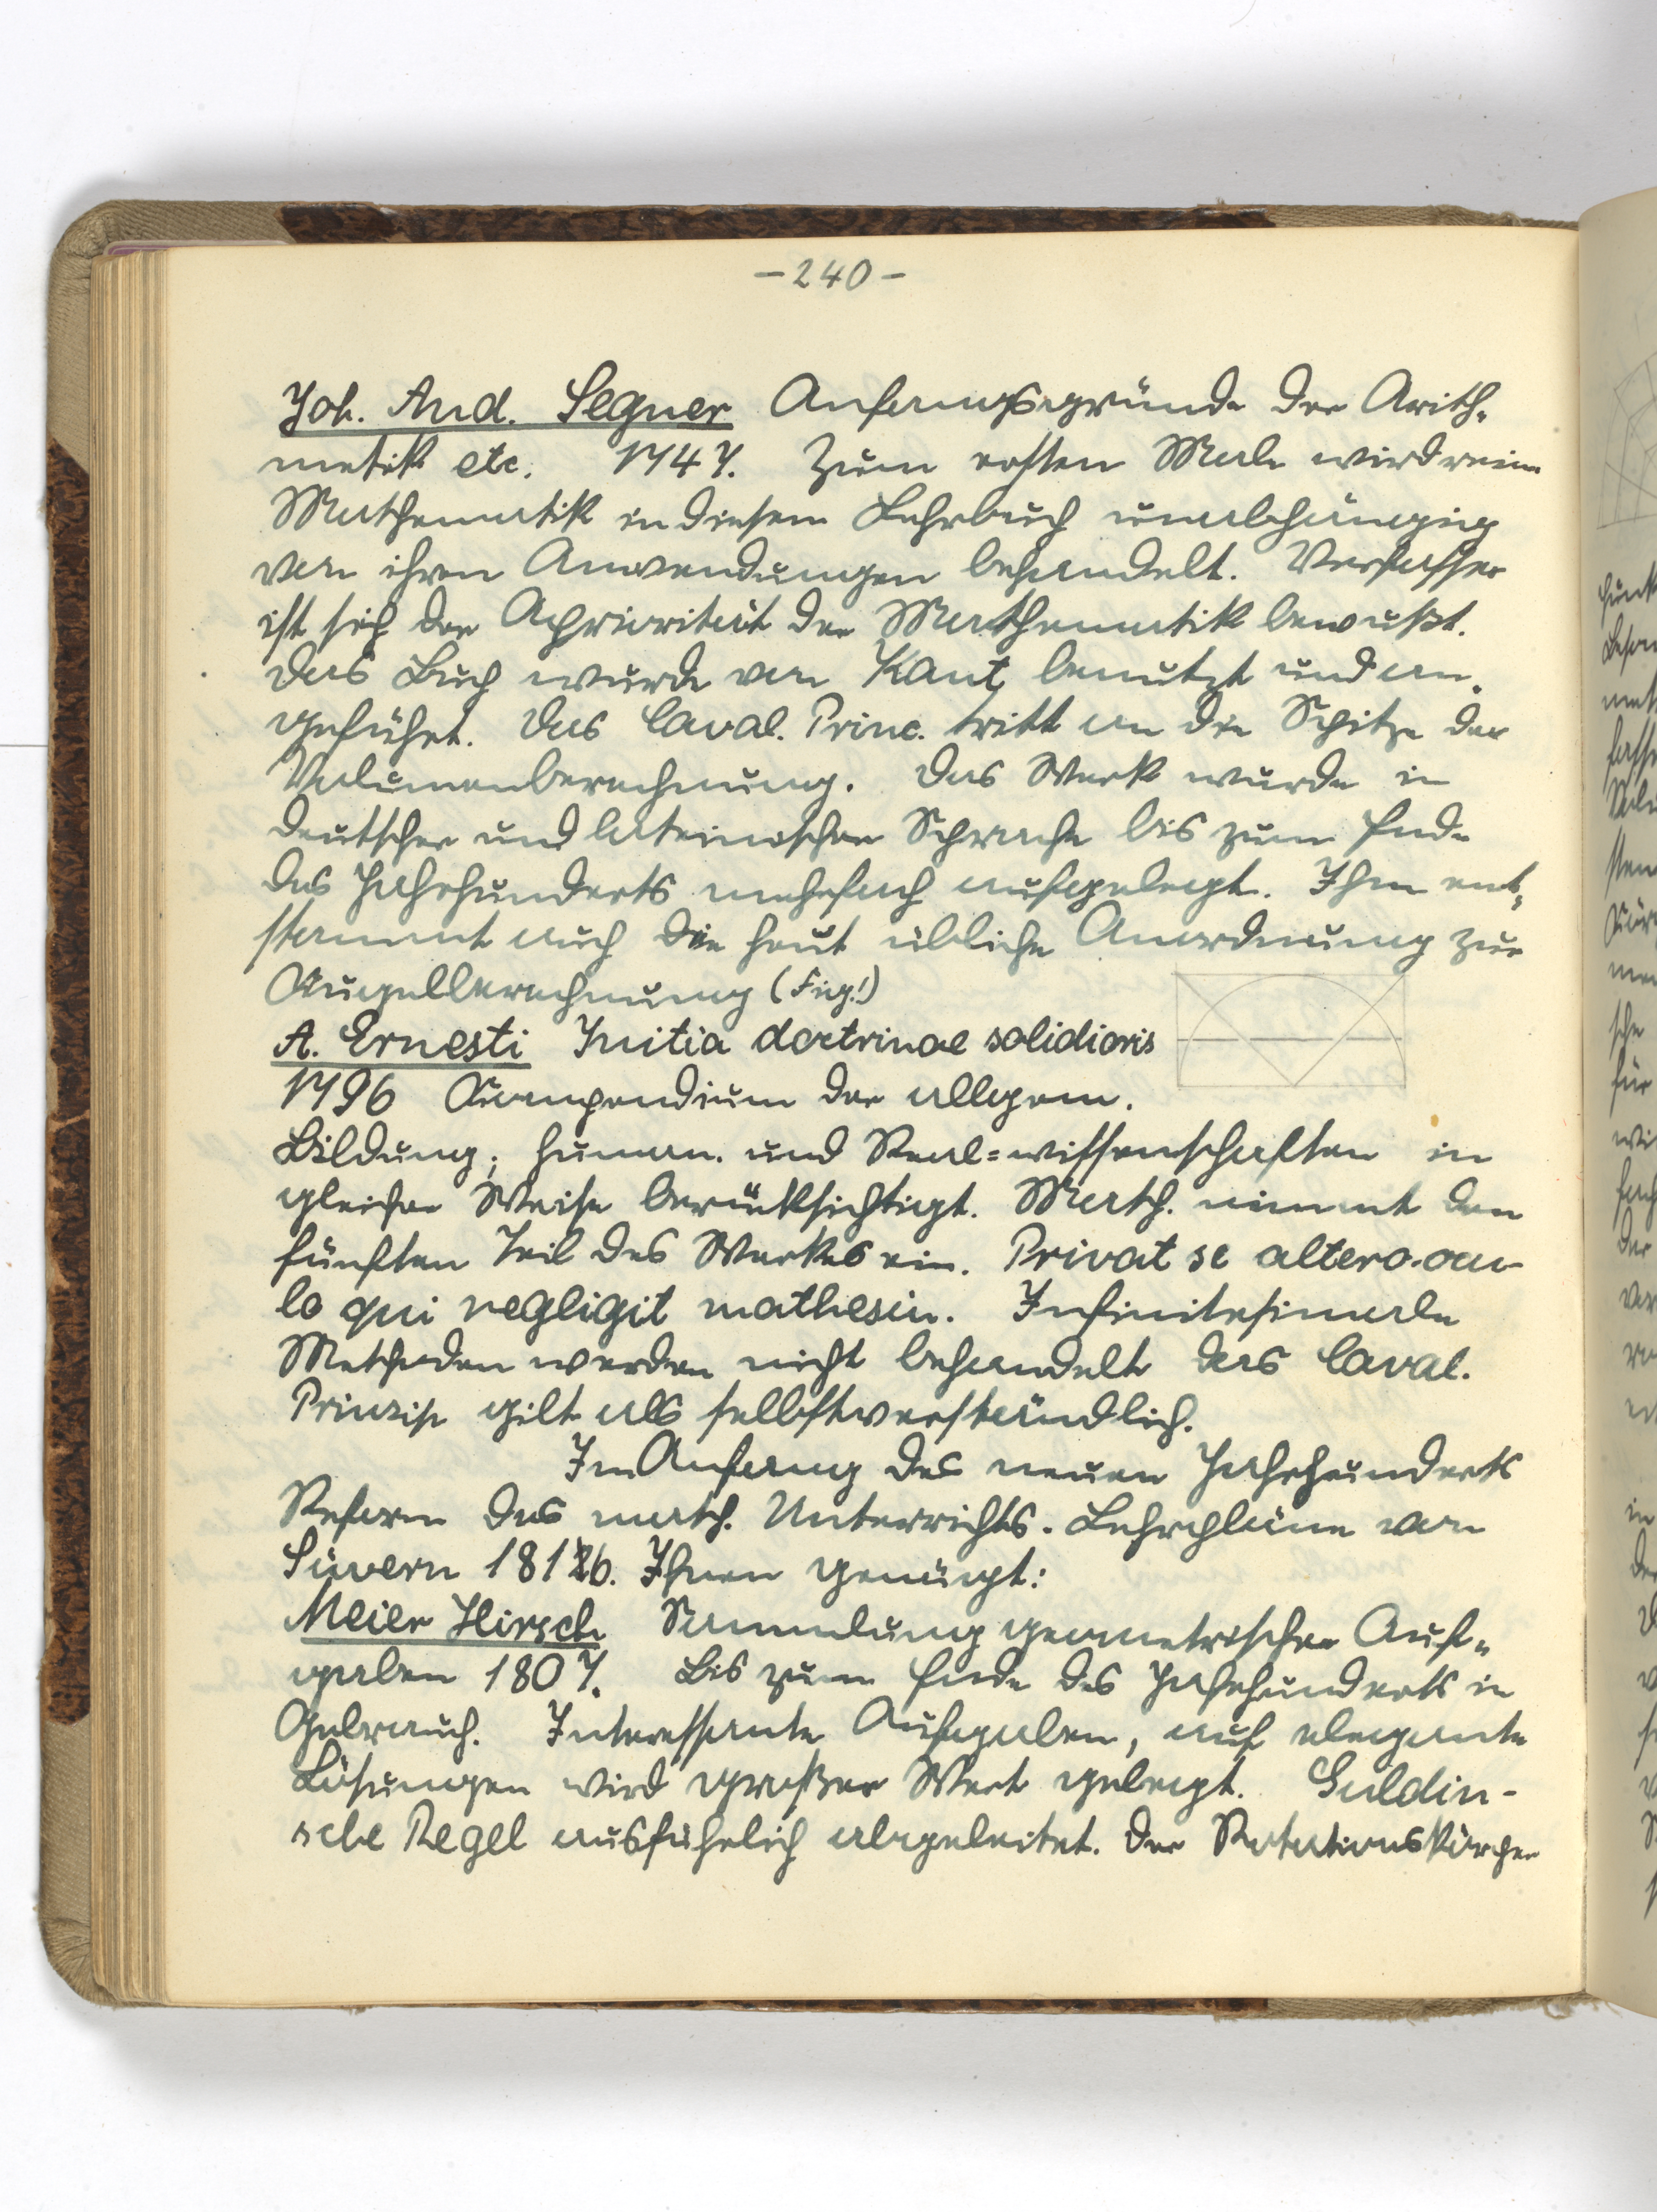 -240-
Joh. And. Segner Anfangsgründe der Arith-
metik etc. 1747. Zum ersten Male wird reine
Mathematik in diesem Lehrbuch unabhängig
von ihren Anwendungen behandelt. Verfasser
ist sich der Apriorität der Mathematik bewußt.
Das Buch wurde von Kant benutzt und an-
geführt. Das Caval. Princ. tritt an die Spitze der
Volumenberechnung. Das Werk wurde in
deutscher und lateinischer Sprache bis zum Ende
des Jahrhunderts mehrfach aufgelegt. Ihm ent-
stammt auch die heut übliche Anordnung zur
Kugelberechnung (Fig!)
A. Ernesti Initia doctrinae solidioris
1796 Kompendium der allgem.
Bildung; human. und Real=wissenschaften in
gleicher Weise berücksichtigt. Math. nimmt den
fünften Teil des Werkes ein. Privat se altero ocu-
lo qui negligit mathesin. Infinitesimale
Methoden werden nicht behandelt das Caval.
Prinzip gilt als selbstverständlich.
Im Anfang des neuen Jahrhunderts
Reform des math. Unterrichts. Lehrpläne von
Süvern 1816. Ihnen genügt:
Meier Hirsch Sammlung geometrischer Auf-
gaben 1807. Bis zum Ende des Jahrhunderts in
Gebrauch. Interessante Aufgaben, auf elegante
Lösungen wird großer Wert gelegt. Guldin-
sche Regel ausführlich abgeleitet. Der Rotationskörper